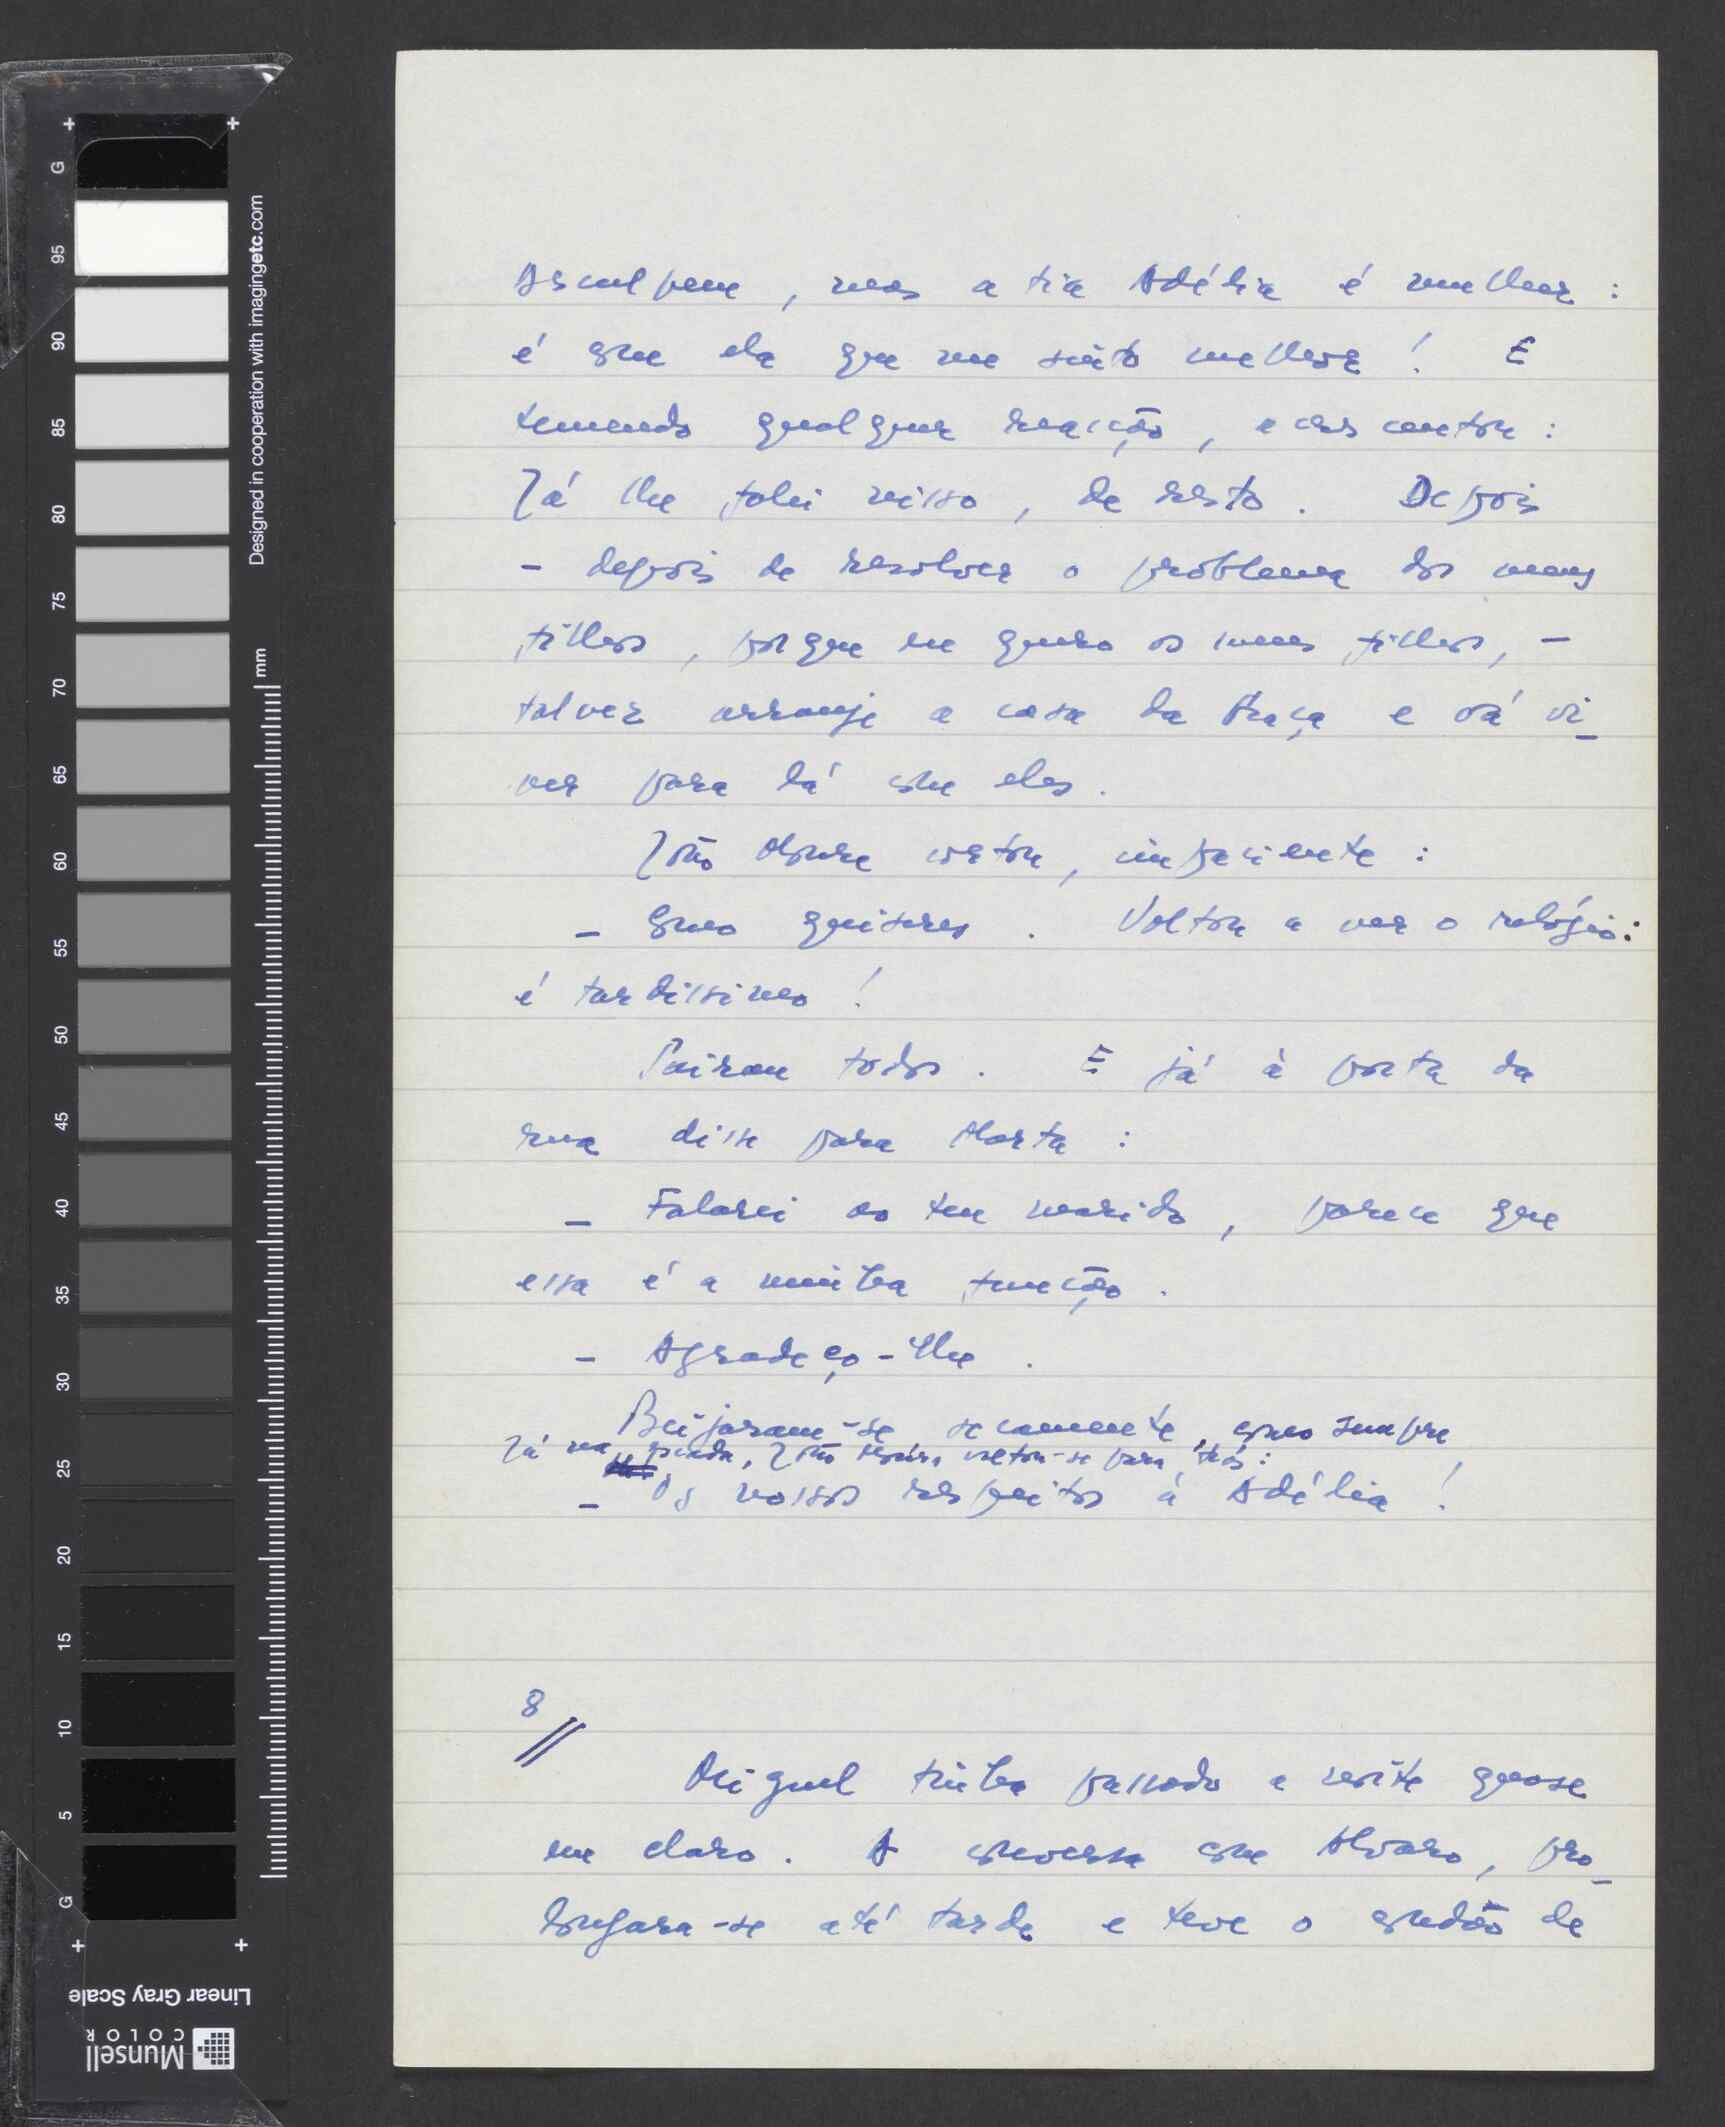 Desculpem, mas a tia Adélia é mulher:
é com ela que me sinto melhor! E
temendo qualquer reacção, acrescentou:
Já lhe falei nisso, de resto. Depois
- depois de resolver o problema dos meus
filhos, porque eu quero os meus filhos, -
talvez arranje a casa da Praça e vá vi-
ver para lá com eles.
João Moura cortou, impaciente:
- Como quiseres. Voltou a ver o relógio:
é tardíssimo!
Sairam todos. E já à porta da
rua disse para Marta:
- Falarei ao teu marido, parece que
essa é a minha função.
- Agradeço-lhe.
Beijaram-se secamente, como sempre,
Já na escada, João Moura voltou-se para trás:
- Os nossos respeitos à Adélia!
8//
Miguel tinha passado a noite quase
em claro. A conversa com Álvaro, pro-
longara-se até tarde e teve o condão de
G
95
90
85
80
75
70
65
60
55
50
45
40
35
30
25
20
15
10
5
G
Designed in cooperation with imagingetc.com
mm
Linear Gray Scale
Munsell
COLOR